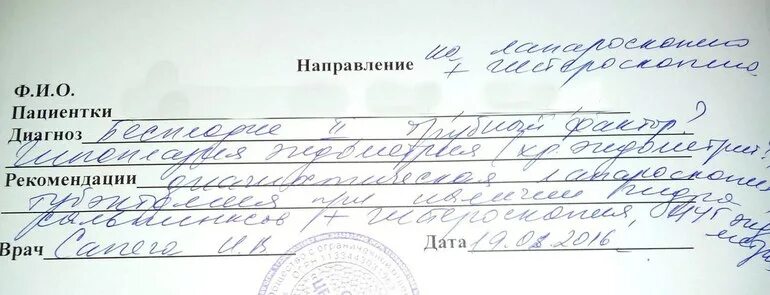 Направление на лапароскопию
+ гистероскопию
Ф.И.О.
Пациентки
Диагноз Бесплодие II Трубный фактор?
Гипоплазия эндометрия (хр. эндометрит?
Рекомендации диагностическая лапароскопия
тубэктомия при наличии гидро
сальпинксов + гистероскопия,
Врач Сапега И.В Дата 19.03.2016